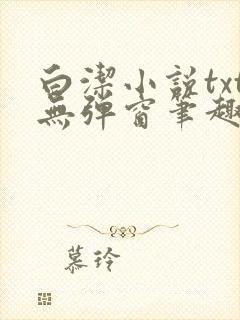 白潔小說txt
無彈窗筆趣
慕玲